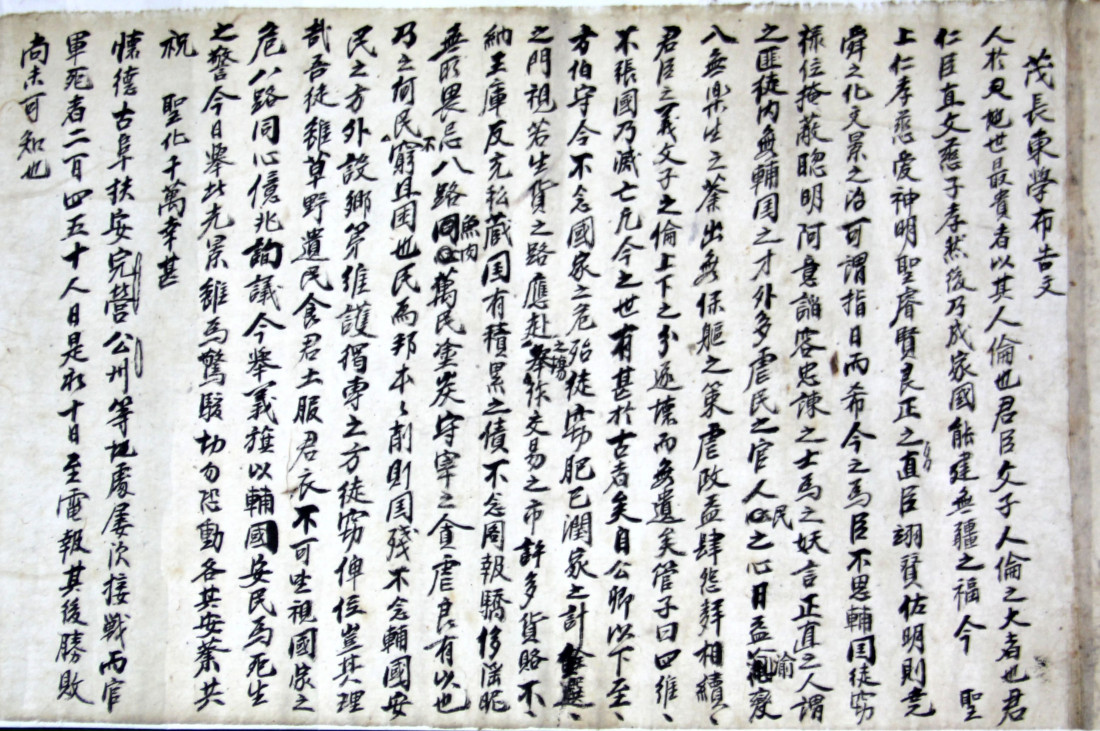 茂長東學布告文
人於天地世最貴者以其人倫也君臣父子人倫之大者也君
仁臣直父慈子孝然後乃成家國能建無疆之福今 聖
上仁孝慈愛神明聖睿賢良正之直臣翊贊佐明則堯
舜之化文景之治可謂指日而希今之爲臣不思輔国徒窃
祿位掩蔽聰明阿意謟容忠諫之士爲之妖言正直之人謂
之匪徒內無輔国之才外多虐民之官人民之心日益渝変
入無樂生之業出無保軀之策虐政益肆怨聲相續〻
君臣之義父子之倫上下之分遂壞而無遺矣管子曰四維〻
不張國乃滅亡方今之世有甚於古者矣自公卿以下至〻
方伯守令不念國家之危殆徒窃肥己潤家之計銓選〻
之門視若生貨之路應赴之場擧作交易之市許多貨賂不〻
納王庫反充私藏国有積累之債不念圖報驕侈淫昵
無所畏忌八路魚肉萬民塗炭守宰之貪虐良有以也
乃之何民不窮且困也民爲邦本〻削則国殘不念輔國安
民之方外設鄕第維護獨專之方徒窃俸位豈其理
哉吾徒雖草野遺民食君土服君衣不可坐視國家之
危八路同心億兆詢議今擧義旗以輔國安民爲死生
之誓今日擧此光景雖爲驚駭切勿恐動各其安業共
祝 聖化千萬幸甚
懷德古阜扶安完營公州等地處屡次接戰而官
軍死者二百四五十人日是初十日至電報其後勝敗
尚未可知也